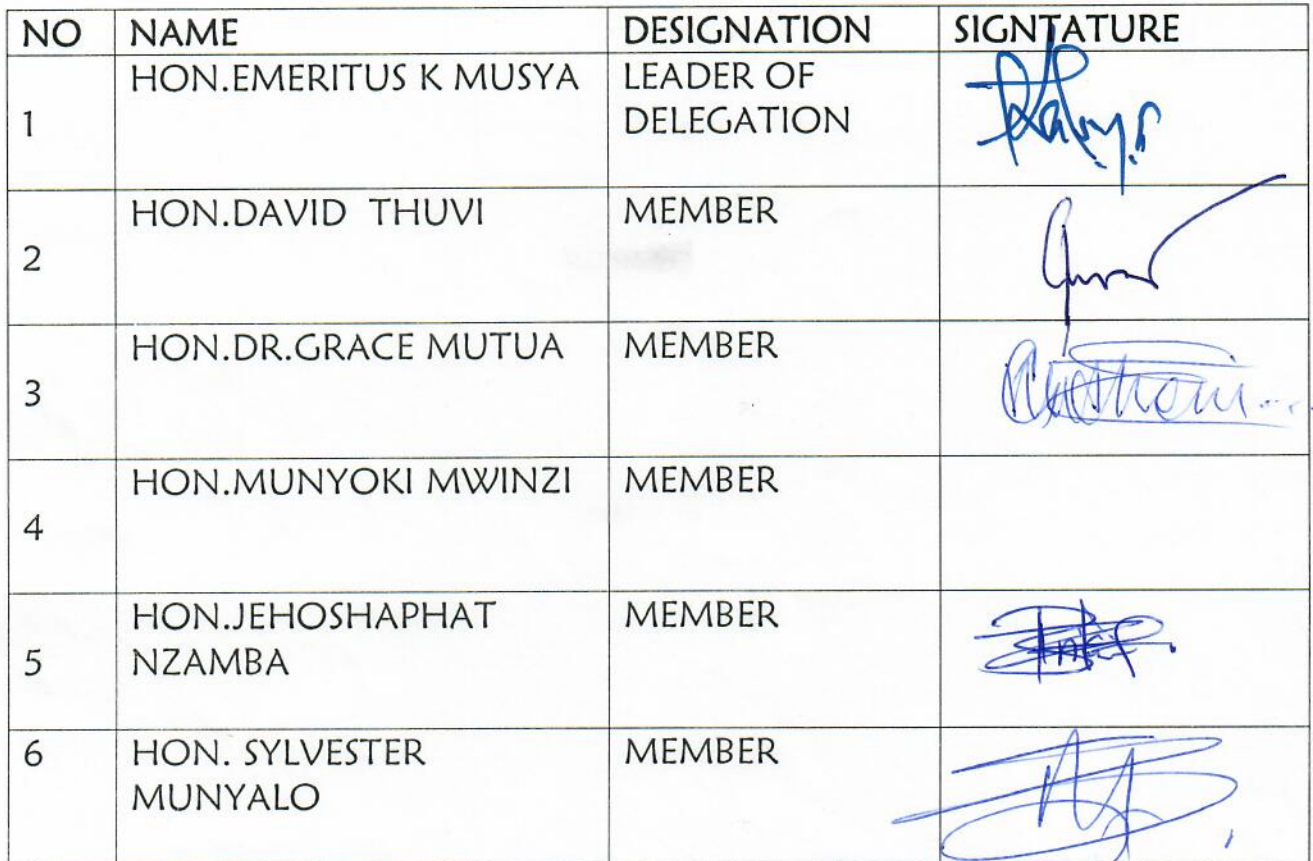 NO NAME DESIGNATION SIGNTATURE
1 HON.EMERITUS K MUSYA LEADER OF
DELEGATION
2 HON.DAVID THUVI MEMBER
3 HON.DR.GRACE MUTUA MEMBER
4 HON.MUNYOKI MWINZI MEMBER
5 HON.JEHOSHAPHAT MEMBER
NZAMBA
6 HON. SYLVESTER MEMBER
MUNYALO